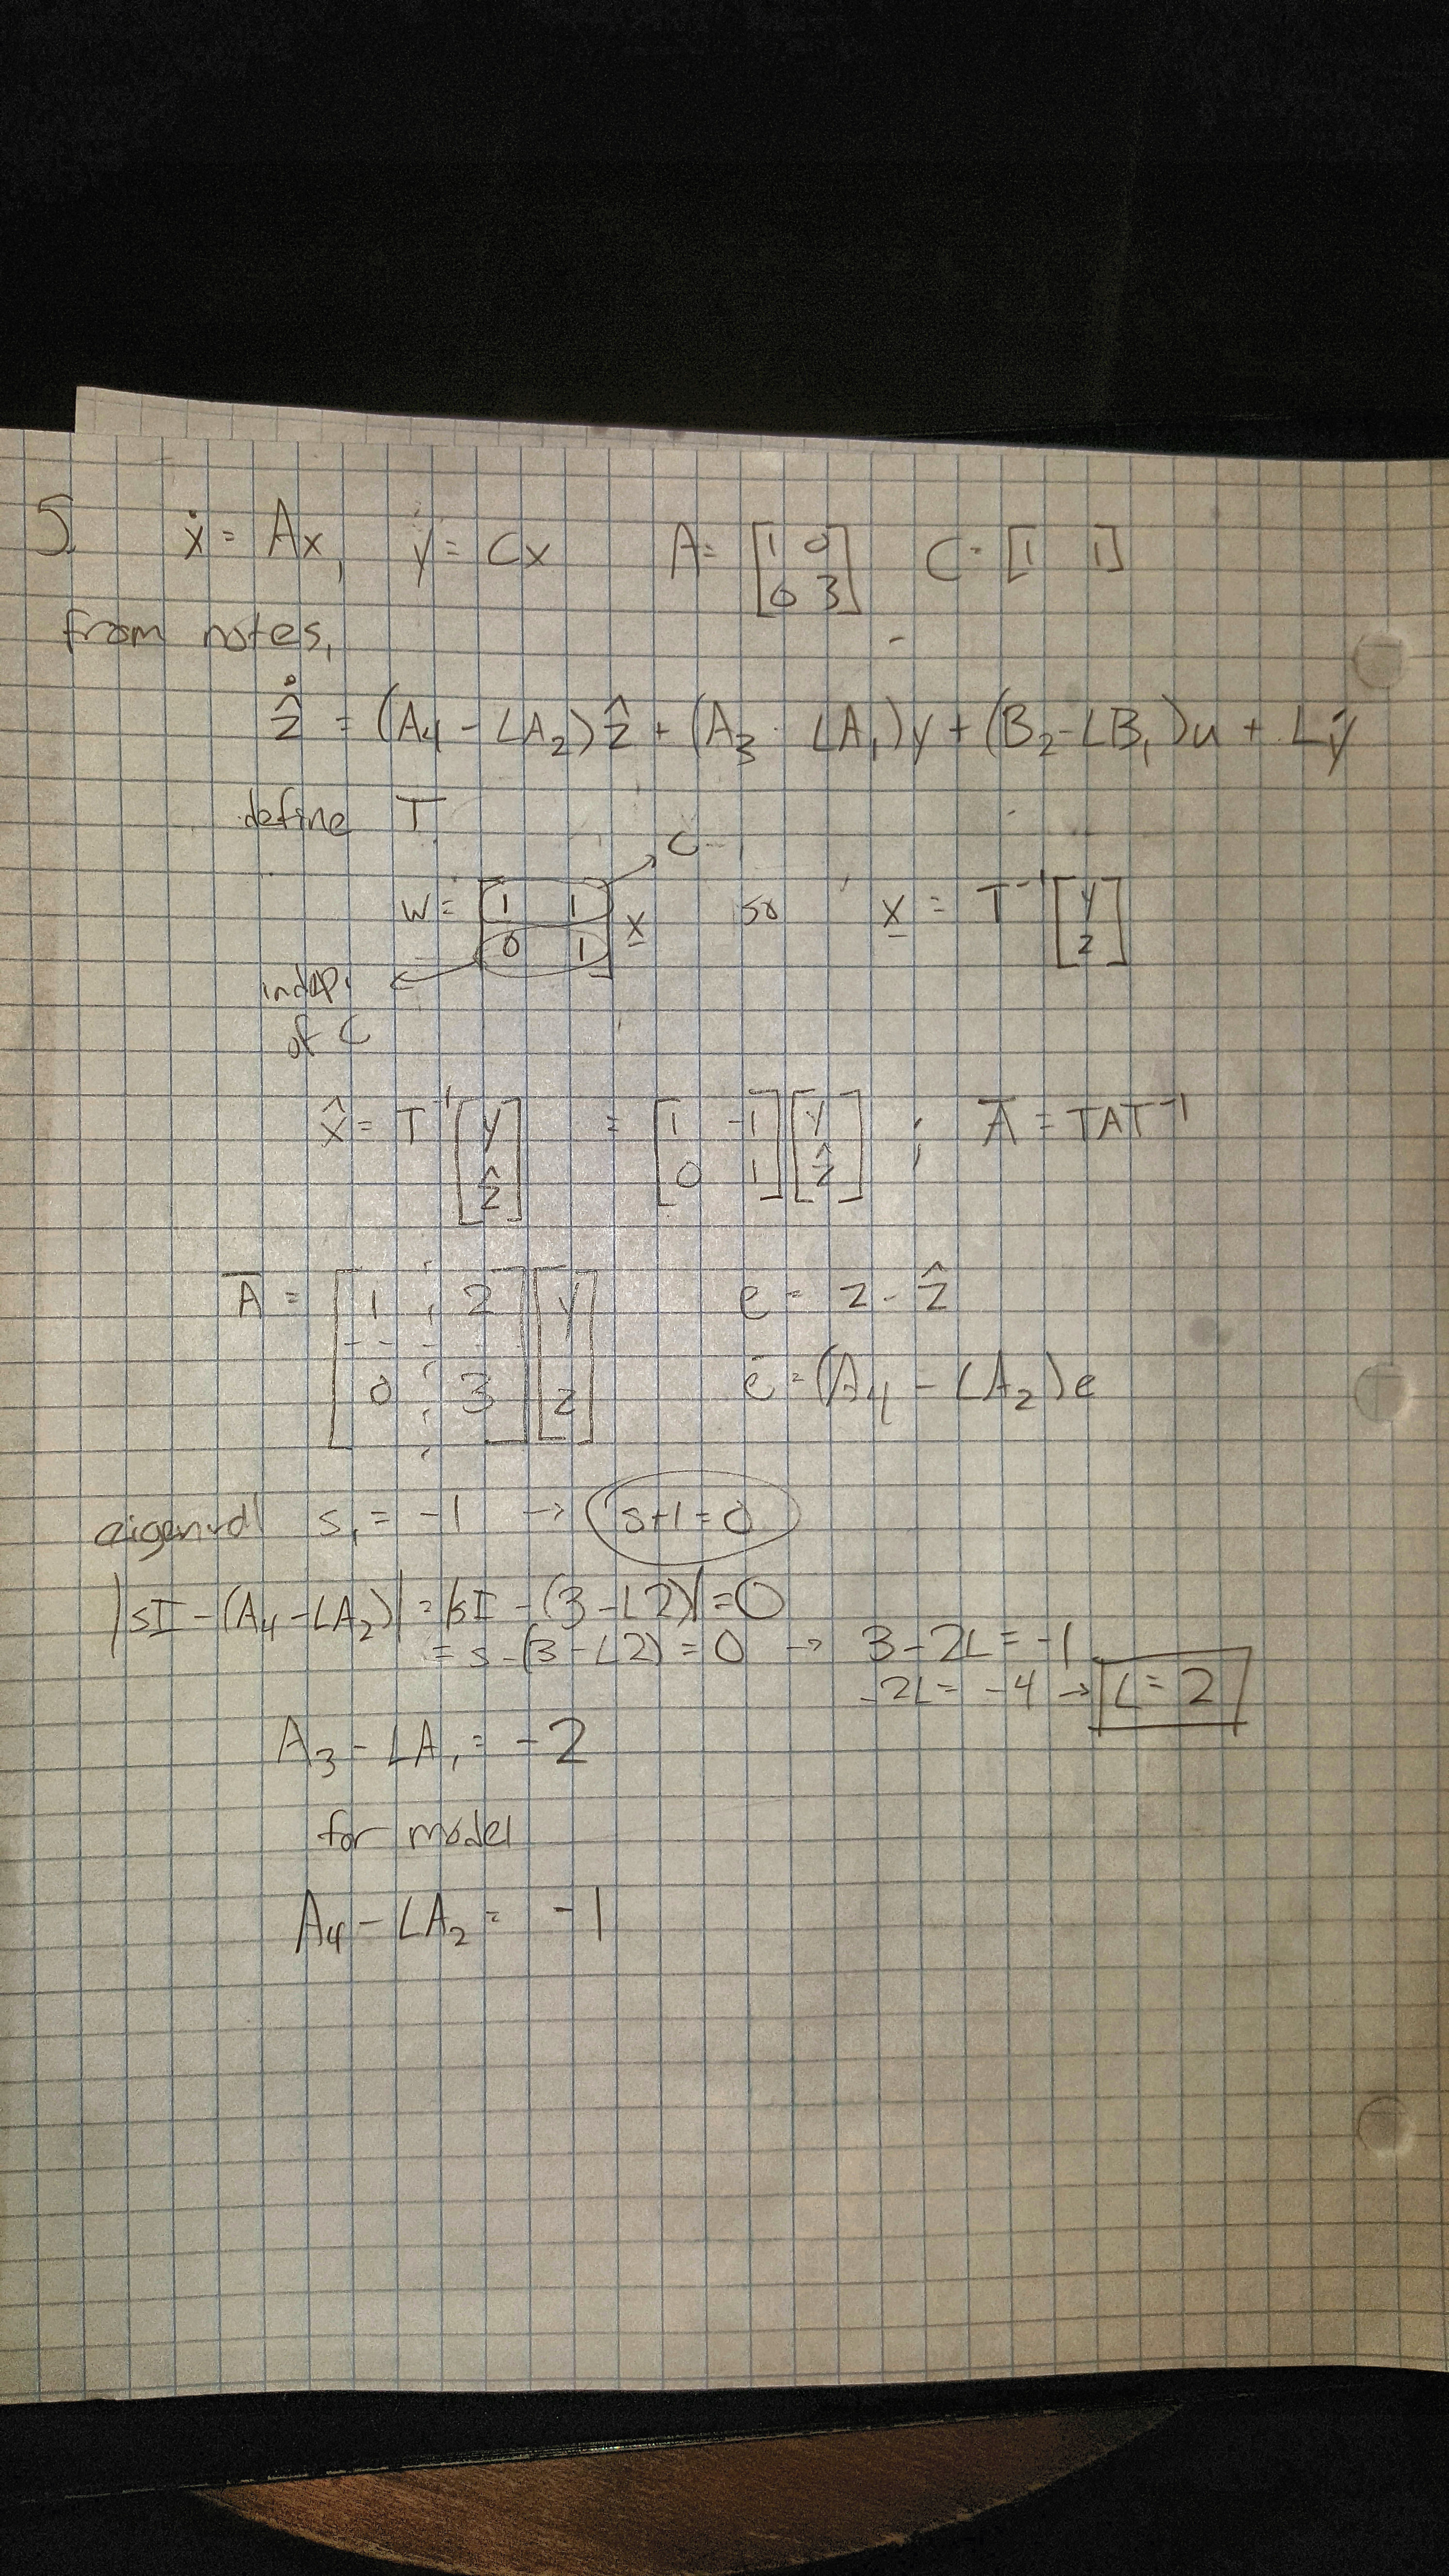 5. ẋ = Ax, y = Cx A = [1 0; 0 3] C = [1 1]
from notes,
ẑ̇ = (A₄ - LA₂)ẑ + (A₃ - LA₁)y + (B₂ - LB₁)u + Lẏ
define T
C
w = [1 1; 0 1] x so x = T⁻¹ [y; z]
indep. of C
x̂ = T⁻¹ [y; ẑ] = [1 -1; 0 1][y; ẑ] ; Ā = TAT⁻¹
Ā = [1 2; 0 3][y; z] e = z - ẑ
ė = (A₄ - LA₂)e
aigenval s₁ = -1 → s+1 = 0
|sI - (A₄ - LA₂)| = |sI - (3 - L2)| = 0
= s - (3 - L2) = 0 → 3 - 2L = -1
-2L = -4 → L = 2
A₃ - LA₁ = -2
for model
A₄ - LA₂ = -1